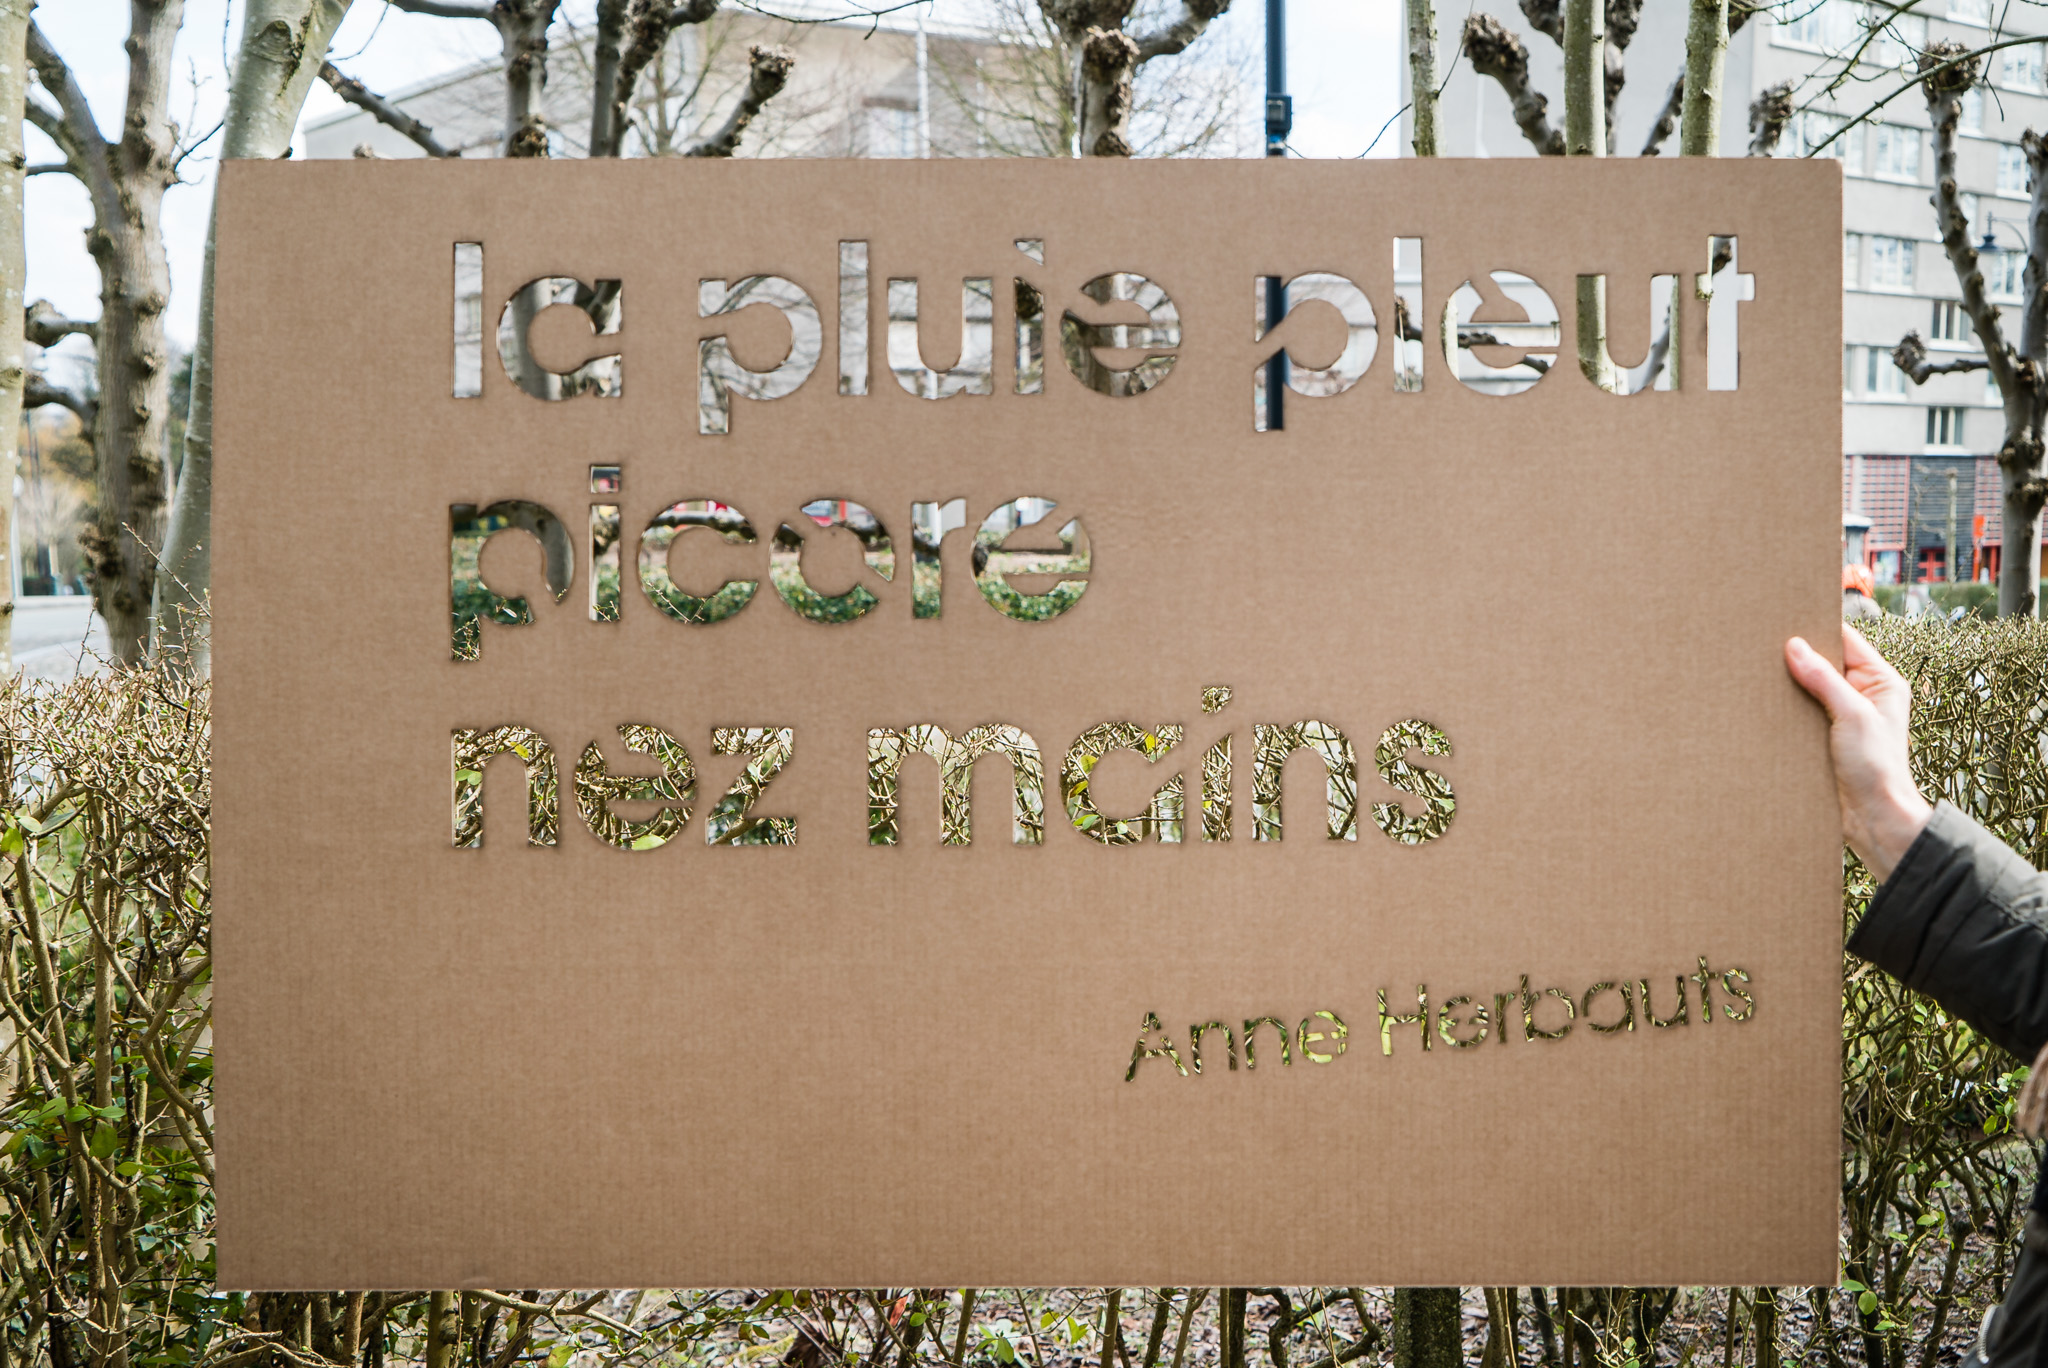 la pluie pleut
picore
nez mains
Anne Herbauts